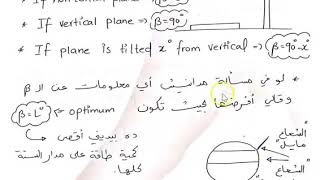 * If vertical plane => β=90°
* If plane is tilted x° from vertical => β=90°-x°
* لو في مسألة مدانيش أي معلومات عن الـ β
وقالي أفرضها بحيث تكون optimum => β=L°
ده بيديني أقصى
كمية طاقة على مدار السنة
كلها.
الشعاع
"مايل"
"الشعاع